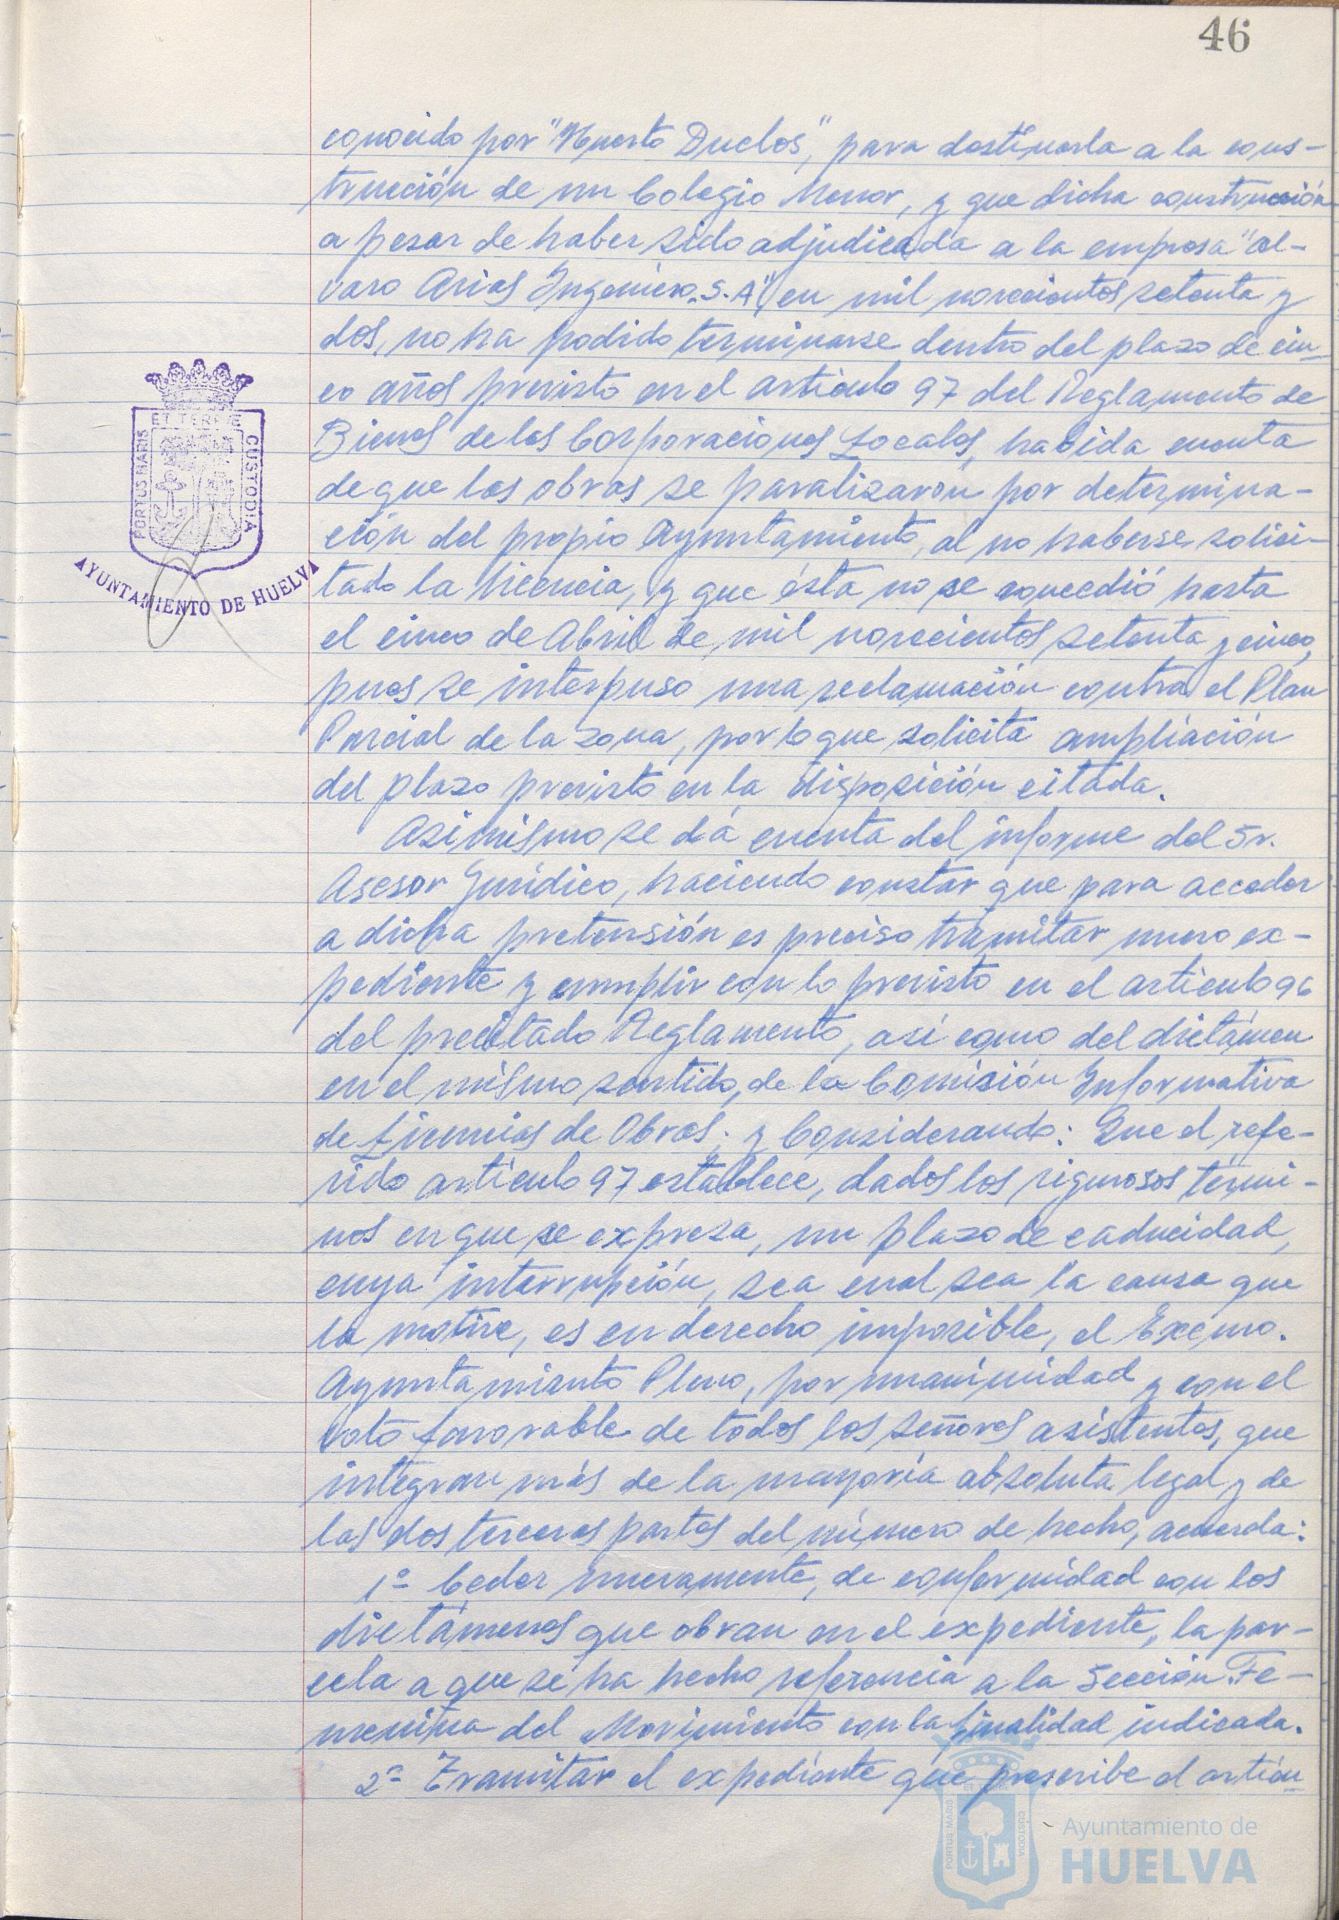 46
conocido por "Huerto Duclos", para destinarla a la cons-
trucción de un Colegio Menor, y que dicha construcción
a pesar de haber sido adjudicada a la empresa "Al-
varo Arias Ingeniero, S.A" en mil novecientos setenta y
dos, no ha podido terminarse dentro del plazo de cin-
co años previsto en el artículo 97 del Reglamento de
Bienes de las Corporaciones Locales, habida cuenta
de que las obras se paralizaron por determina-
ción del propio Ayuntamiento, al no haberse solici-
tado la licencia, y que ésta no se concedió hasta
el cinco de Abril de mil novecientos setenta y cinco,
pues se interpuso una reclamación contra el Plan
Parcial de la zona, por lo que solicita ampliación
del plazo previsto en la disposición citada.
Asimismo se dá cuenta del informe del Sr.
Asesor Jurídico, haciendo constar que para acceder
a dicha pretensión es preciso tramitar nuevo ex-
pediente y cumplir con lo previsto en el artículo 96
del precitado Reglamento, así como del dictámen
en el mismo sentido, de la Comisión Informativa
de Licencias de Obras; y Considerando: Que el refe-
rido artículo 97 establece, dados los rigurosos térmi-
nos en que se expresa, un plazo de caducidad,
cuya interrupción, sea cual sea la causa que
la motive, es en derecho imposible, el Excmo.
Ayuntamiento Pleno, por unanimidad y con el
voto favorable de todos los señores asistentes, que
integran más de la mayoría absoluta legal y de
las dos terceras partes del número de hecho, acuerda:
1º- Ceder nuevamente, de conformidad con los
dictámenes que obran en el expediente, la par-
cela a que se ha hecho referencia a la Sección Fe-
menina del Movimiento con la finalidad indicada.
2º- Tramitar el expediente que prescribe el artícu-
PORTUS MARIS
ET TERRE
CUSTODIA
AYUNTAMIENTO DE HUELVA
PORTUS MARIS
CUSTODIA
Ayuntamiento de
HUELVA